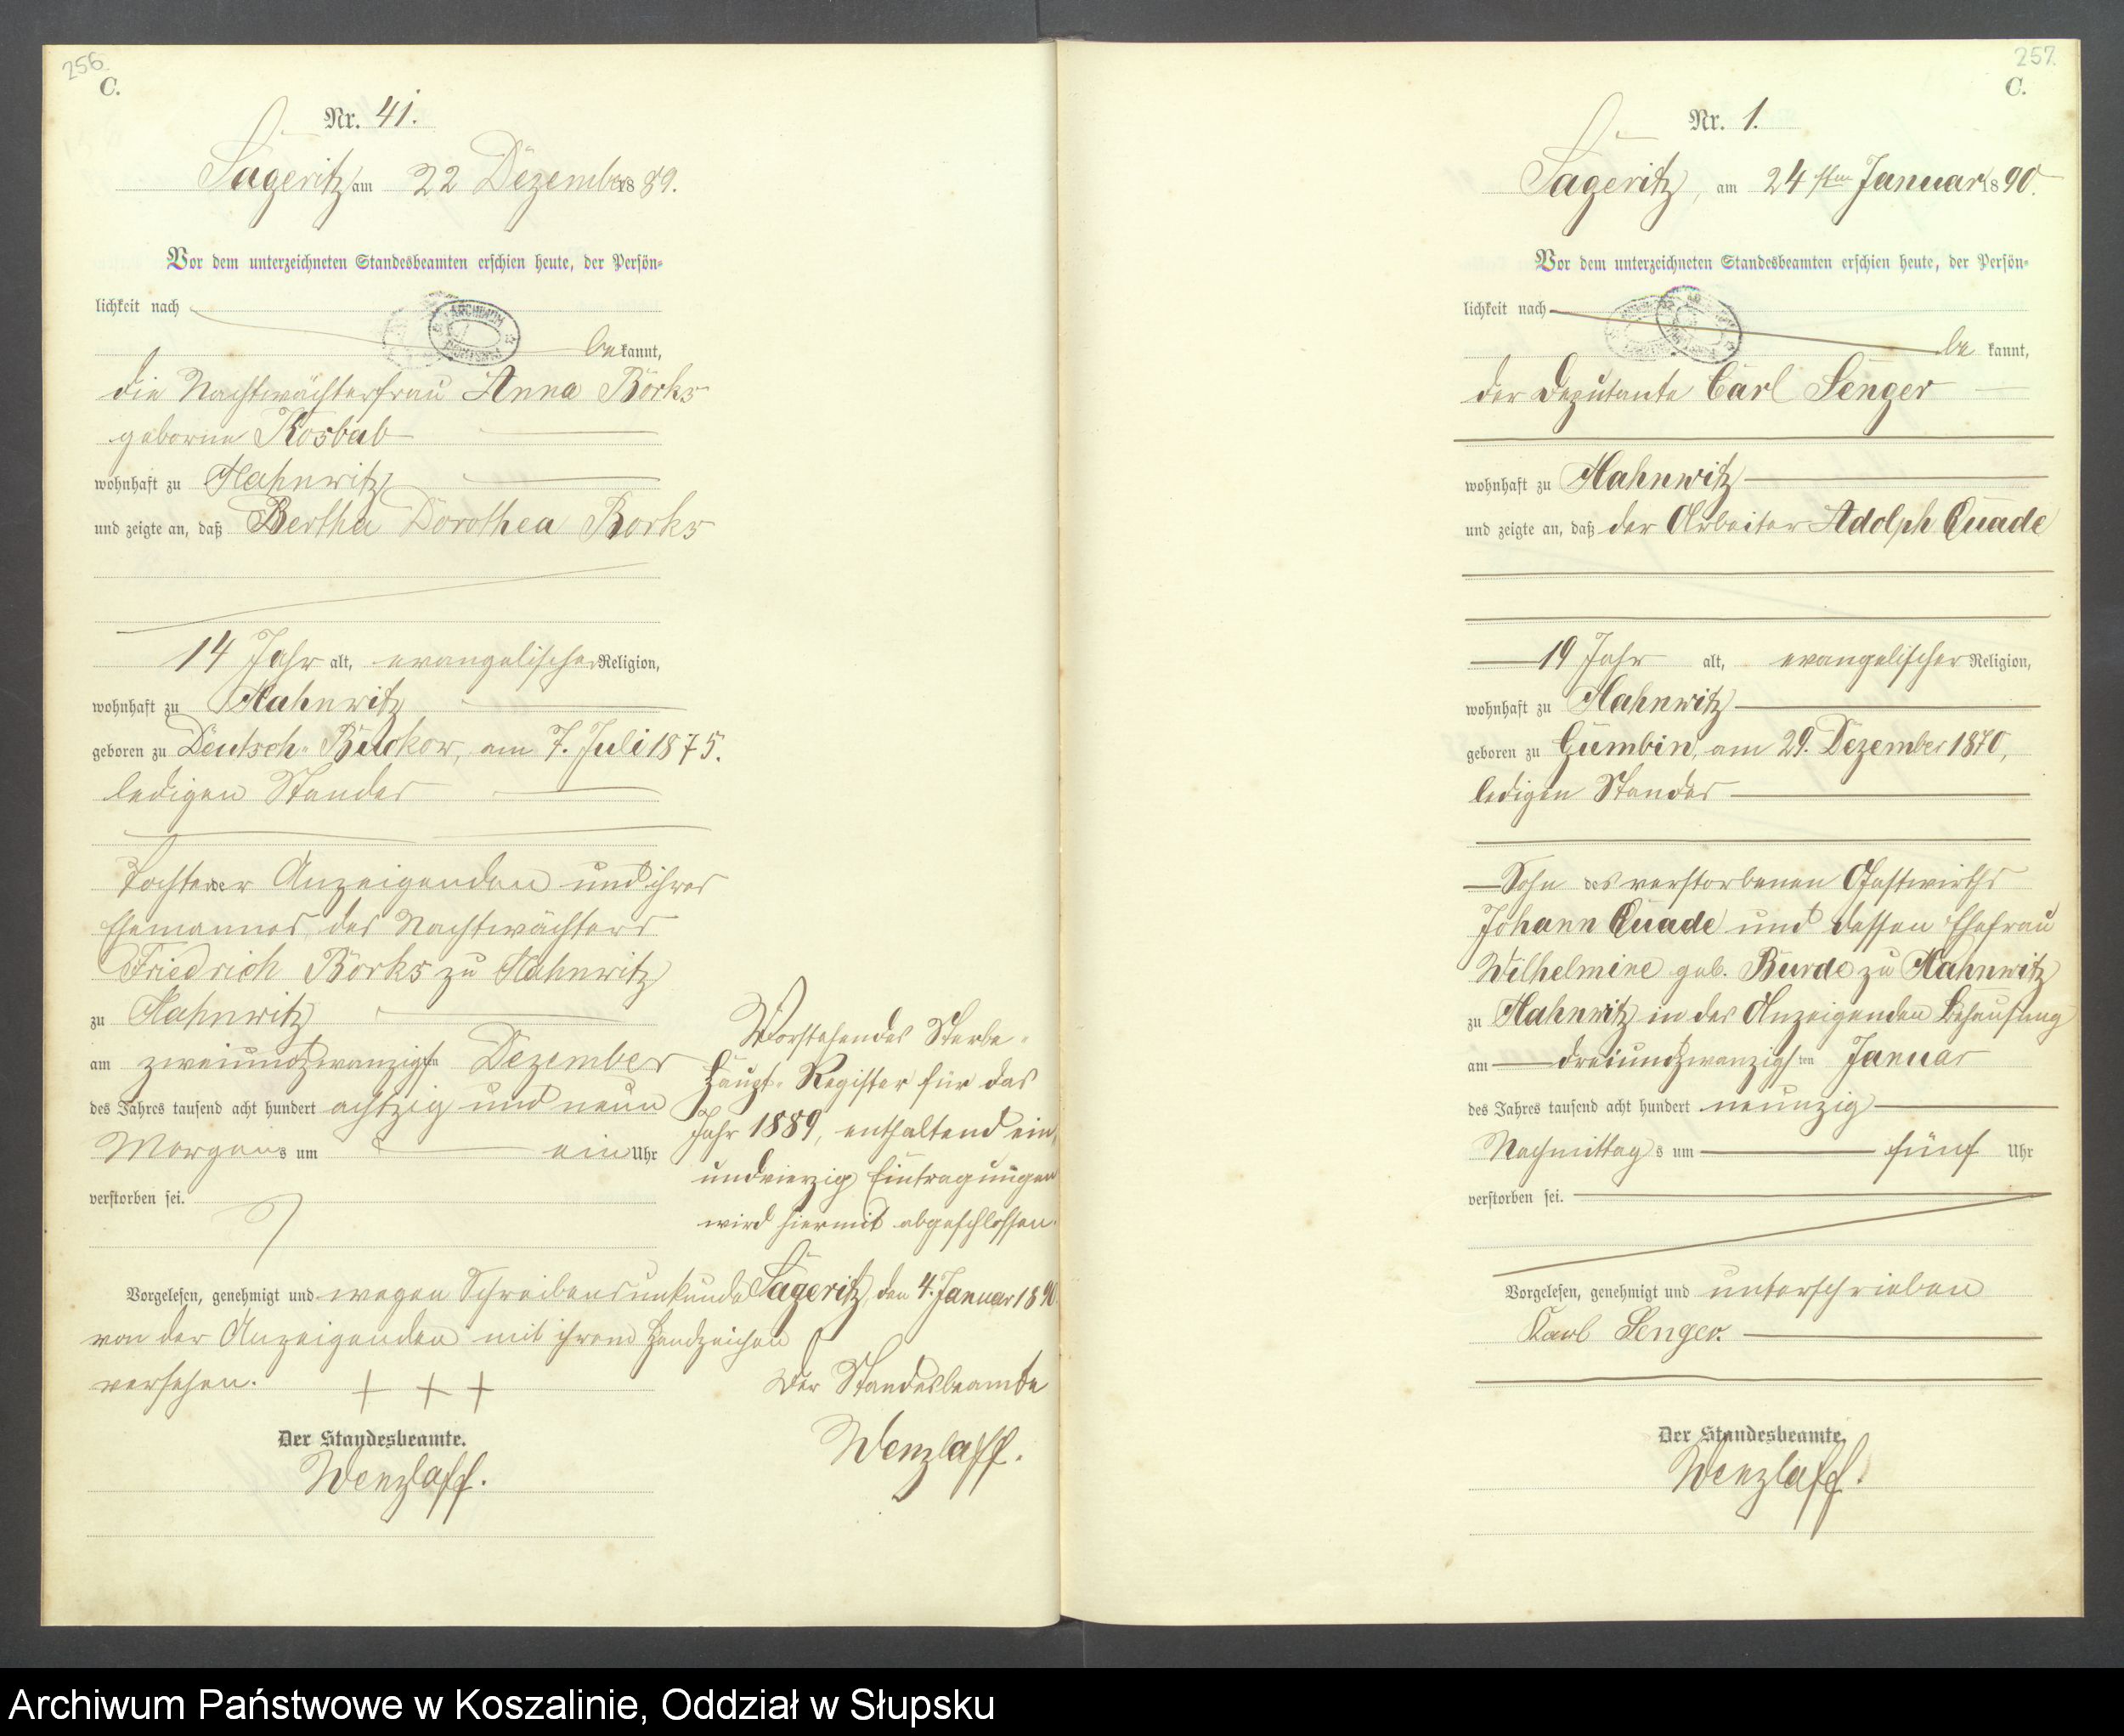 256.
C.
Nr. 41.
Sageritz am 22 Dezember 1889.
Vor dem unterzeichneten Standesbeamten erschien heute, der Persön-
lichkeit nach
bekannt,
die Nachtwächterfrau Anna Börks
geborne Kosbab
wohnhaft zu Hahnwitz
und zeigte an, daß Bertha Dorothea Borks
14 Jahr alt, evangelischer Religion,
wohnhaft zu Hahnwitz
geboren zu Deutsch-Buckow, am 7. Juli 1875.
ledigen Standes
Tochter der Anzeigenden und ihres
Ehemannes, des Nachtwächters
Friedrich Börks zu Hahnwitz
zu Hahnwitz
am zweiundzwanzigsten Dezember
des Jahres tausend acht hundert achtzig und neun
Morgens um ein Uhr
verstorben sei.
Vorgelesen, genehmigt und wegen Schreibensunkunde
von der Anzeigenden mit ihrem Handzeichen
versehen. + + +
Der Standesbeamte.
Wenzlaff.
Vorstehendes Sterbe-
Haupt-Register für das
Jahr 1889, enthaltend ein
undvierzig Eintragungen
wird hiermit abgeschlossen.
Sageritz, den 4. Januar 1890.
Der Standesbeamte
Wenzlaff.
257.
C.
Nr. 1.
Sageritz, am 24sten Januar 1890.
Vor dem unterzeichneten Standesbeamten erschien heute, der Persön-
lichkeit nach
bekannt,
der Deputante Carl Senger
wohnhaft zu Hahnwitz
und zeigte an, daß der Arbeiter Adolph Quade
19 Jahr alt, evangelischer Religion,
wohnhaft zu Hahnwitz
geboren zu Gumbin, am 29. Dezember 1870,
ledigen Standes
Sohn des verstorbenen Gastwirths
Johann Quade und dessen Ehefrau
Wilhelmine geb. Burde zu Hahnwitz
zu Hahnwitz in des Anzeigenden Behausung
am dreiundzwanzigsten Januar
des Jahres tausend acht hundert neunzig
Nachmittags um fünf Uhr
verstorben sei.
Vorgelesen, genehmigt und unterschrieben
Karl Senger.
Der Standesbeamte.
Wenzlaff.
Archiwum Państwowe w Koszalinie, Oddział w Słupsku